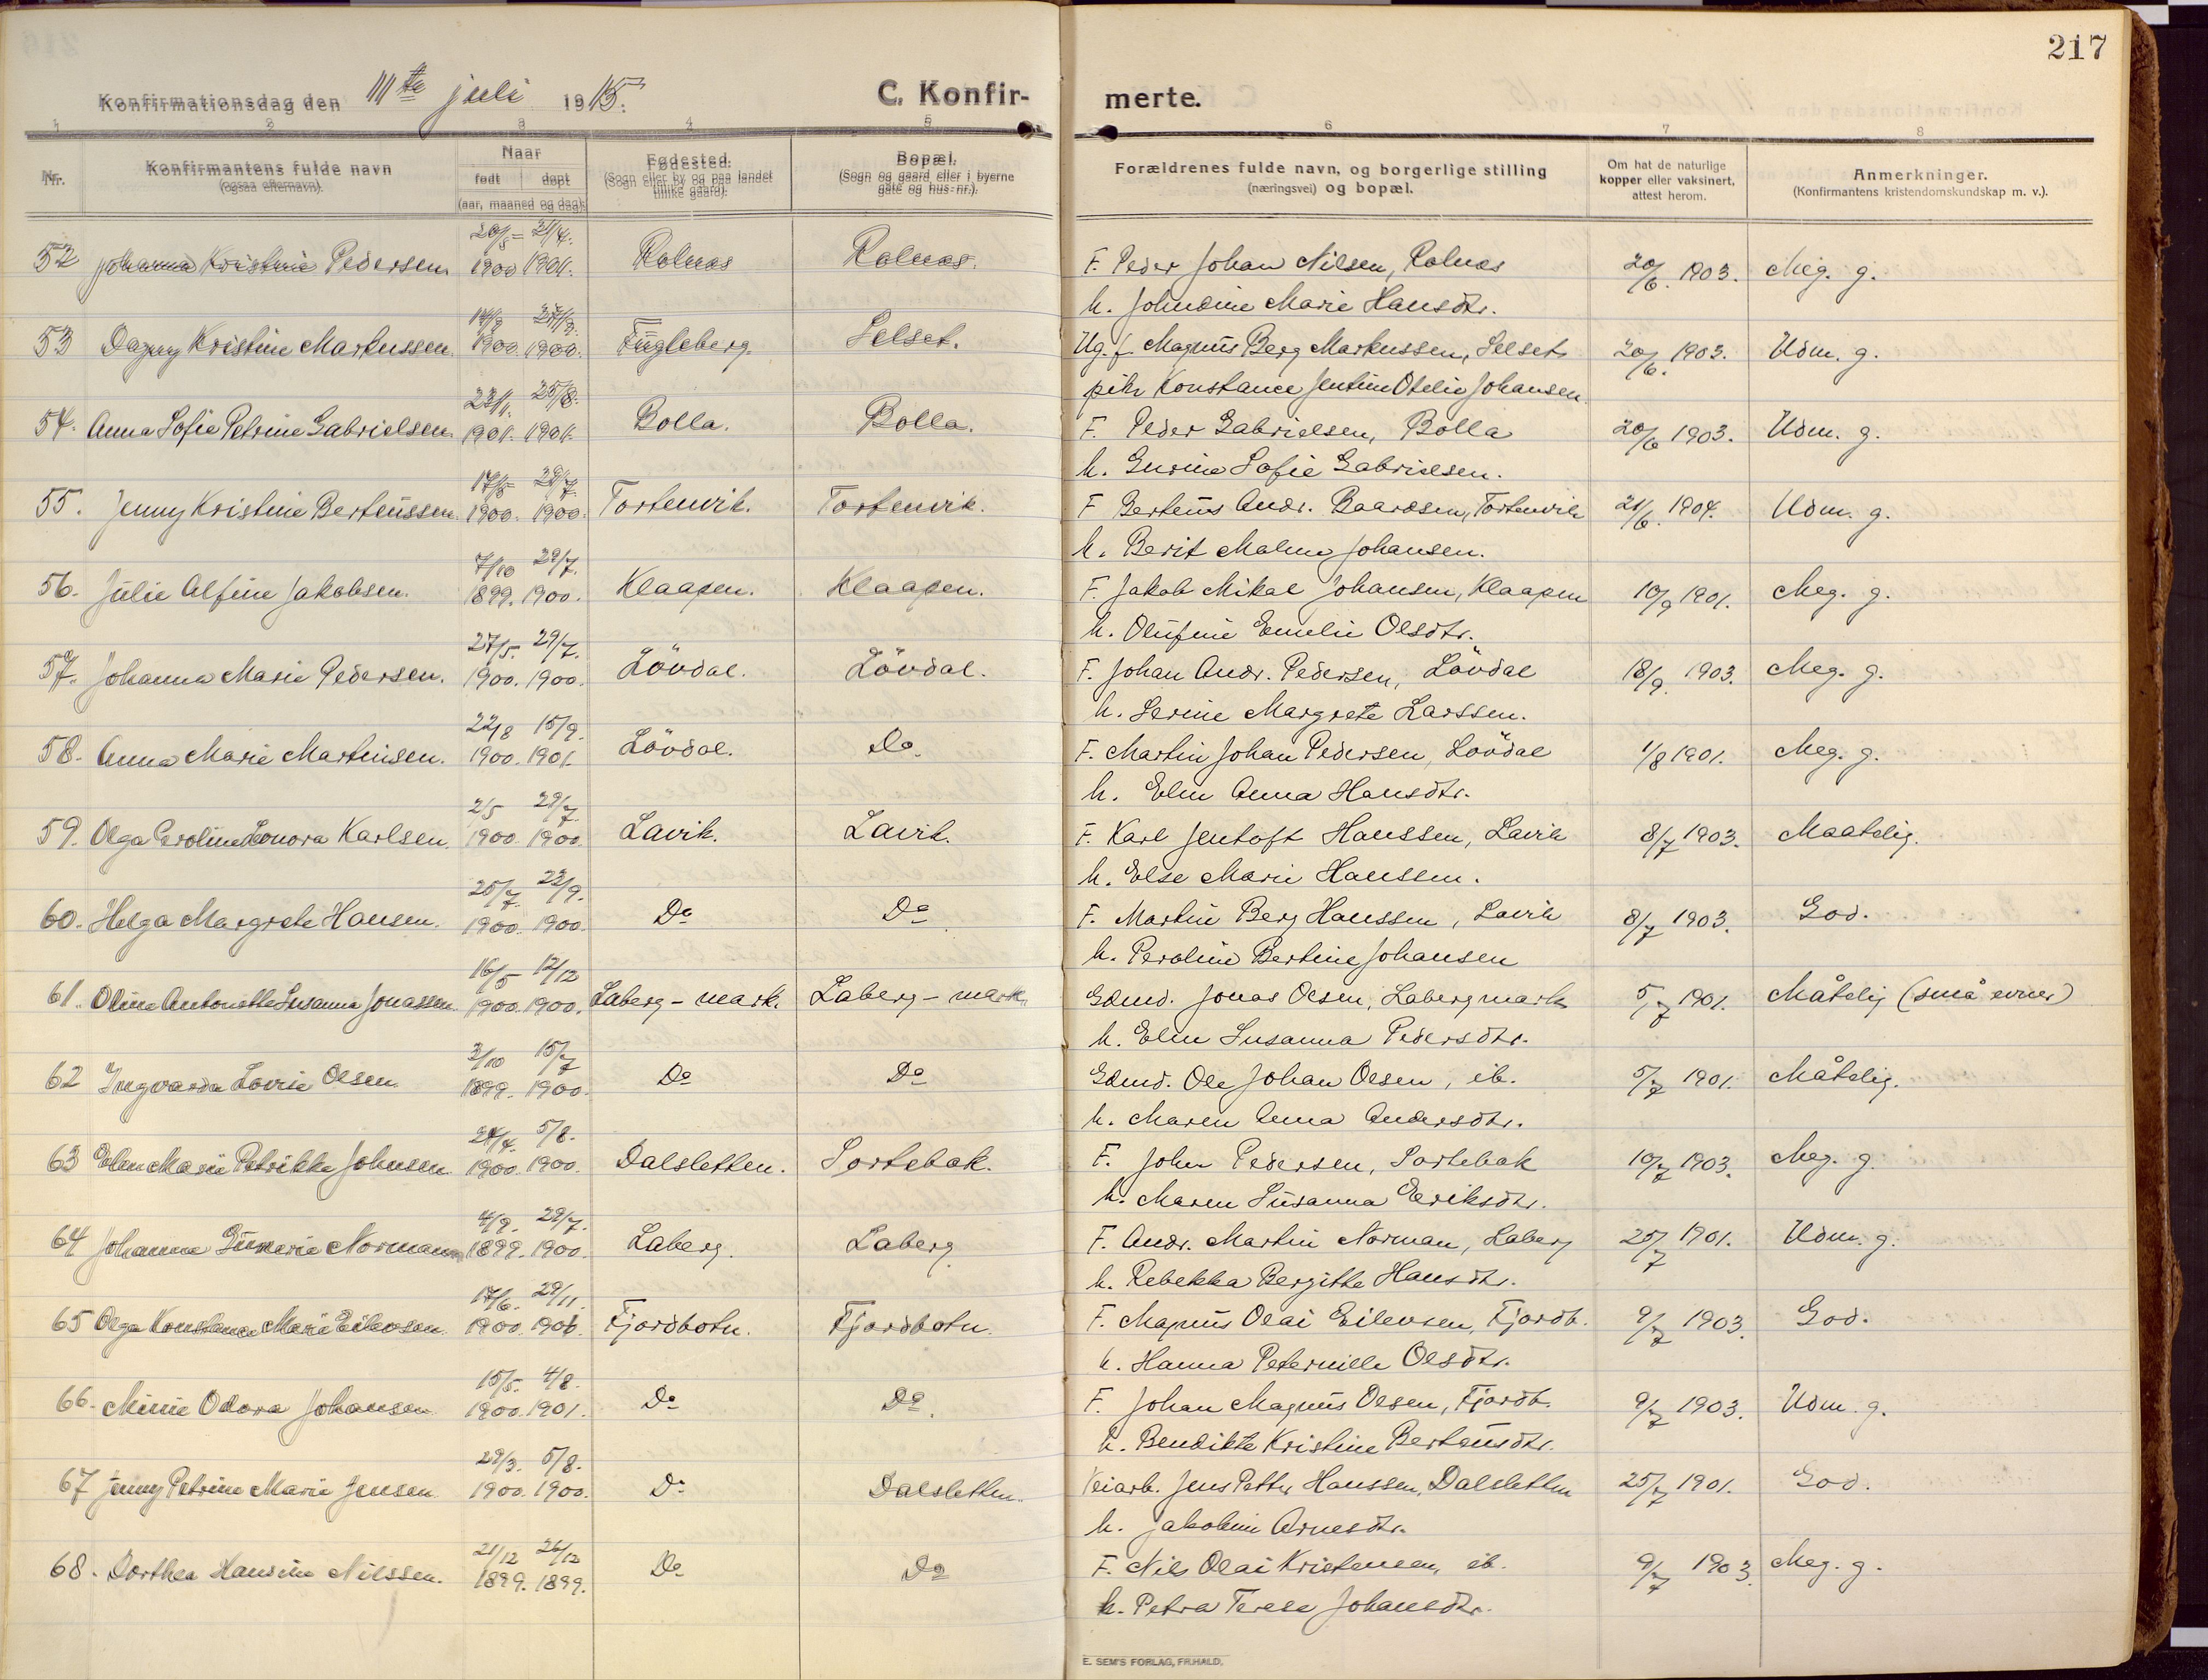 217
Konfirmationsdag den 11te juli 1915. C. Konfir- merte.
1 2 3 4 5 6 7 8
Nr. Konfirmantens fulde navn (ogsaa efternavn). Naar født døpt (aar, maaned og dag). Fødested. (Sogn eller by og paa landet tillike gaard). Bopæl. (Sogn og gaard eller i byerne gate og hus-nr.). Forældrenes fulde navn, og borgerlige stilling (næringsvei) og bopæl. Om hat de naturlige kopper eller vaksinert, attest herom. Anmerkninger. (Konfirmantens kristendomskundskap m. v.).
52 Johanna Kristine Pedersen 1900 1901. Rolnes Rolnes. F. Peder Johan Nilsen, Rolnes 20/6. 1903. Meg. g.
h. Johndine Marie Hansdtr.
53 Dagny Kristine Markussen. 1900. 1900. Fugleberg. Selset. Ug. f. Magnus Berg Markussen, Selset 20/6. 1903. Udm. g.
pike Konstance Jentine Otelie Johansen
54. Anna Sofie Petrine Gabrielsen. 23/1. 1901. 25/8. 1901. Bolla. Bolla. F. Peder Gabrielsen, Bolla 20/6 1903. Udm. g.
h. Gurine Sofie Gabrielsen.
55. Jenny Kristine Berteussen 17/5 1900. 29/7. 1900. Tortenvik. Tortenvik. F Berteus Andr. Baardsen, Tortenvik 21/6. 1904. Udm. g.
h. Berit Malene Johansen.
56. Julie Alfine Jakobsen. 7/10 1899. 29/7. 1900. Klaapen. Klaapen. F. Jakob Mikal Johansen, Klaapen 10/9 1901. Meg. g.
h. Olufine Emelie Olsdtr.
57. Johanna Marie Pedersen. 27/5. 1900. 29/7. 1900. Lövdal. Lövdal. F. Johan Andr. Pedersen, Lövdal 18/9. 1903. Meg. g.
h. Serine Margrete Larssen.
58. Anna Marie Martinsen. 22/8 1900. 15/9. 1901. Lövdal. Do. F. Martin Johan Pedersen, Lövdal 1/8 1901. Meg. g.
h. Elen Anna Hansdtr.
59. Olga Peroline Leonora Karlsen. 2/5 1900. 29/7. 1900. Lavik. Lavik. F. Karl Jentoft Hanssen, Lavik 8/7 1903. Maatelig.
h. Else Marie Hanssen.
60. Helga Margrete Hansen. 25/7. 1900. 23/9. 1900. Do Do. F. Martin Berg Hanssen, Lavik 8/7 1903. God.
h. Peroline Bertine Johansen
61. Oline Antonette Susanna Jonassen. 16/5 1900. 12/12 1900. Laberg-mark. Laberg-mark. Gdmd. Jonas Olsen, Labergmark 5/7 1901. Måtelig (små evner)
h. Elen Susanna Pedersdtr.
62 Ingvarda Lovise Olsen. 3/10 1899. 15/7 1900. Do Do Gdmd. Ole Johan Olsen, ib. 5/7 1901. Måtelig.
h. Maren Anna Andersdtr.
63 Elen Marie Petrikke Johnsen 24/4. 1900. 5/8. 1900. Dalsletten. Sortebak. F. John Pedersen, Sortebak 10/7 1903. Meg. g.
h. Maren Susanna Eeriksdtr.
64 Johanna Normann 4/9. 1899. 29/7. 1900. Laberg. Laberg. F. Andr. Martin Norman, Laberg 25/7 1901. Udm. g.
h. Rebekka Bergitte Hansdtr.
65 Olga Konstance Marie Eilevsen. 17/6. 1900. 29/11. Fjordbotn. Fjordbotn. F. Magnus Olai Eilevsen, Fjordb. 9/7 1903. God.
h. Hanna Peternille Olsdtr.
66. Minnie Odora Johansen 15/5. 1900. 4/8. 1901. Do Do. F. Johan Magnus Olsen, Fjordb. 9/7 1903. Udm. g.
h. Bendikte Kristine Berteusdtr.
67 Jenny Petrine Marie Jensen 29/3. 1900. 5/8. 1900. Do Dalsletten. Veiarb. Jens Petter Hanssen, Dalsletten 25/7 1901. God.
h. Jakobine Arnesdtr.
68. Dorthea Hansine Nilssen. 21/12 1899. 26/12 1899. Do Do F. Nils Olai Kristensen, ib. 9/7 1903. Meg. g.
h. Petra Terese Johansdtr.
E. SEM'S FORLAG, FR.HALD.